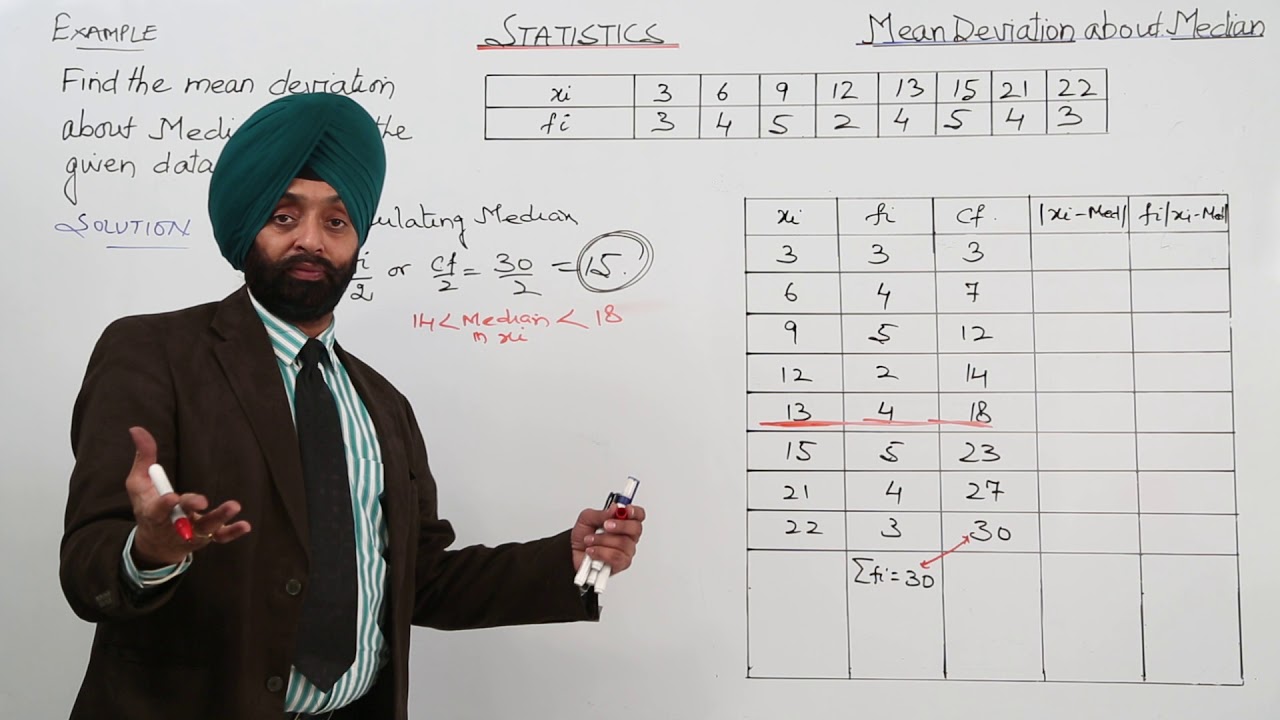 EXAMPLE
STATISTICS
Mean Deviation about Median
Find the mean deviation
about the
given data
xi 3 6 9 12 13 15 21 22
fi 3 4 5 2 4 5 4 3
SOLUTION
Median
2 or cf/2 = 30/2 = 15
14 < Median < 18
in xi
xi fi cf |xi-Med| fi|xi-Med|
3 3 3
6 4 7
9 5 12
12 2 14
13 4 18
15 5 23
21 4 27
22 3 30
Σfi = 30